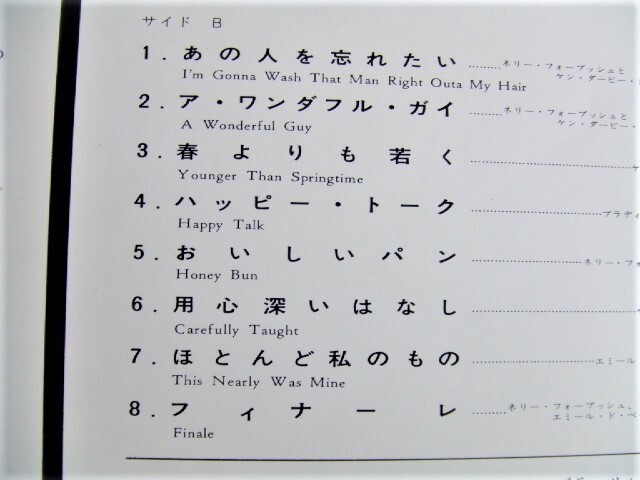 サイド B
1. あの人を忘れたい ………ネリー・フォーブッシュと
I'm Gonna Wash That Man Right Outa My Hair ケン・ダービー・
2. ア・ワンダフル・ガイ ………ネリー・フォーブッシュと
A Wonderful Guy ケン・ダービー・
3. 春よりも若く
Younger Than Springtime
4. ハッピー・トーク ………ブラディ
Happy Talk
5. おいしいパン ………ネリー・フォ
Honey Bun
6. 用心深いはなし
Carefully Taught
7. ほとんど私のもの ………エミール
This Nearly Was Mine
8. フィナーレ ………ネリー・フォーブッシュ、
Finale エミール・ド・ベ